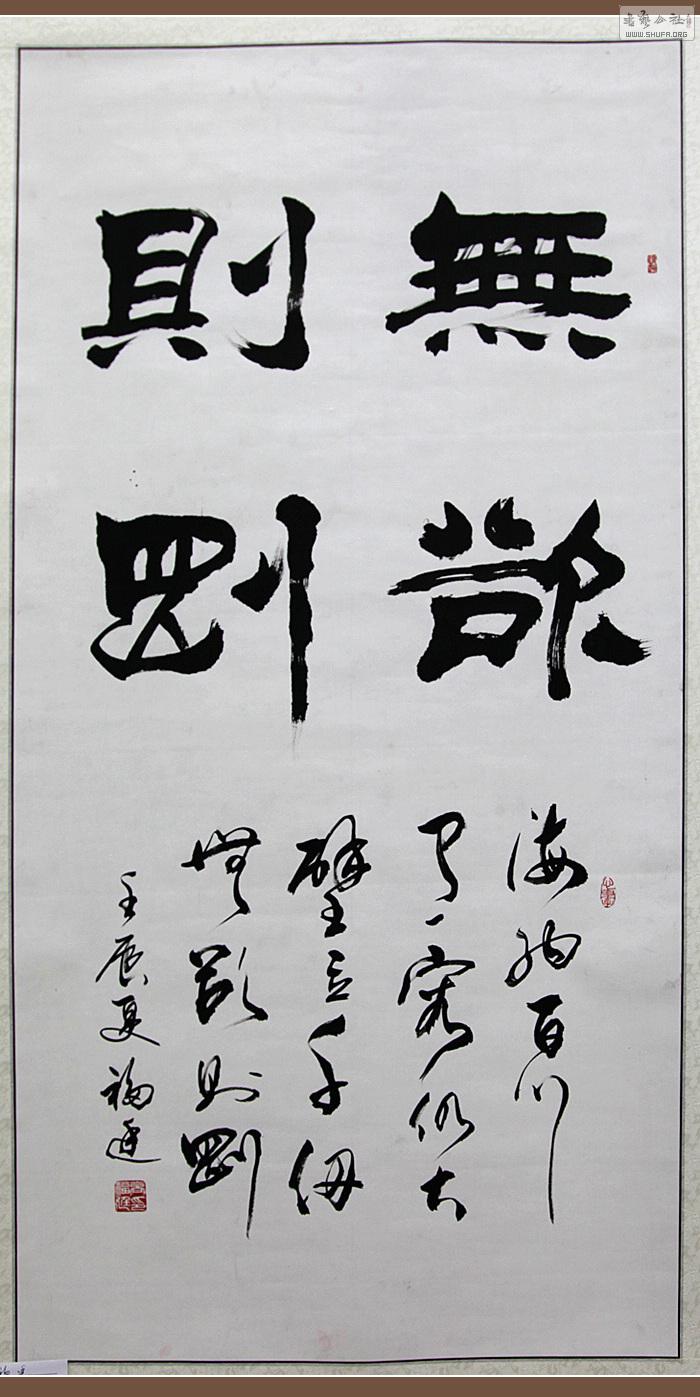 書藝公社
WWW.SHUFA.ORG
無欲
則剛
海納百川
有容乃大
壁立千仞
無欲則剛
壬辰夏福